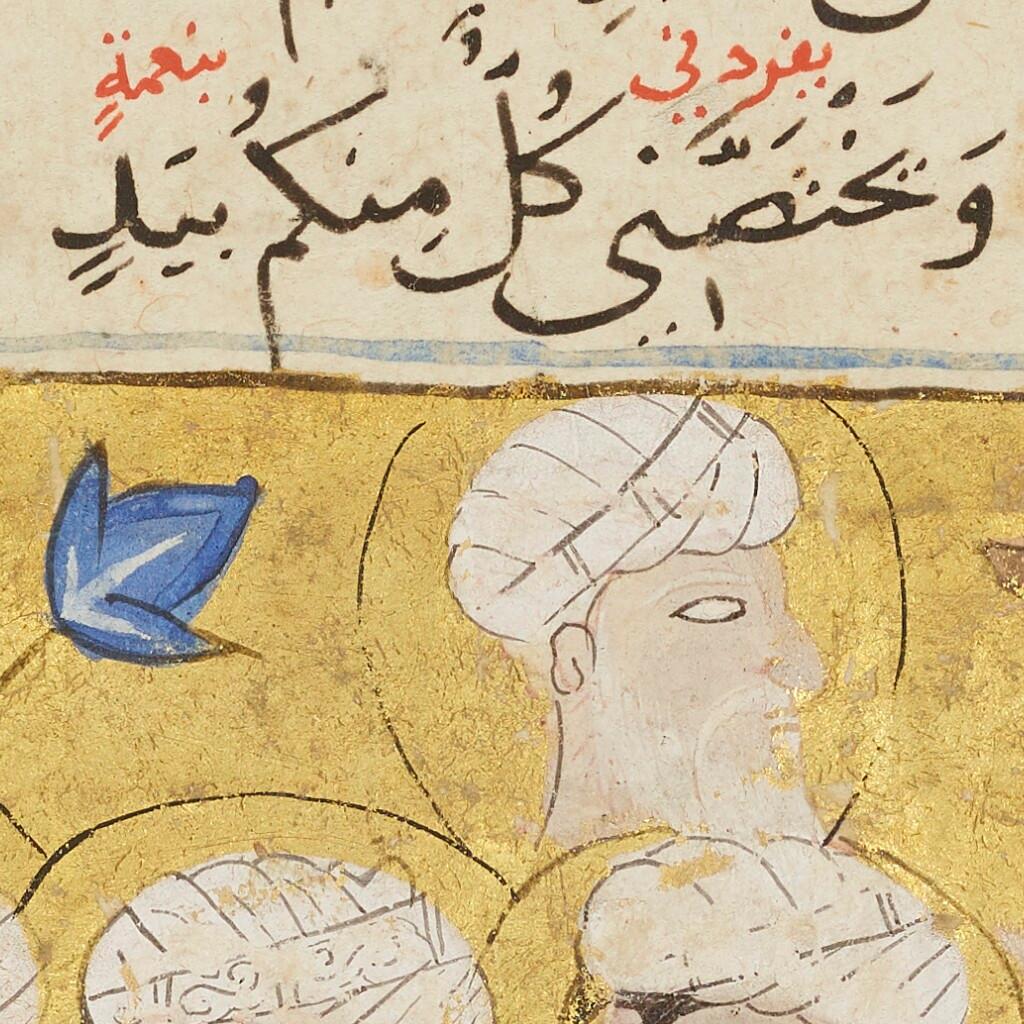 يفردني بنعمةٍ
وَيَخْتَصَّنِي كُلٌّ مِنكُم بِيَدٍ